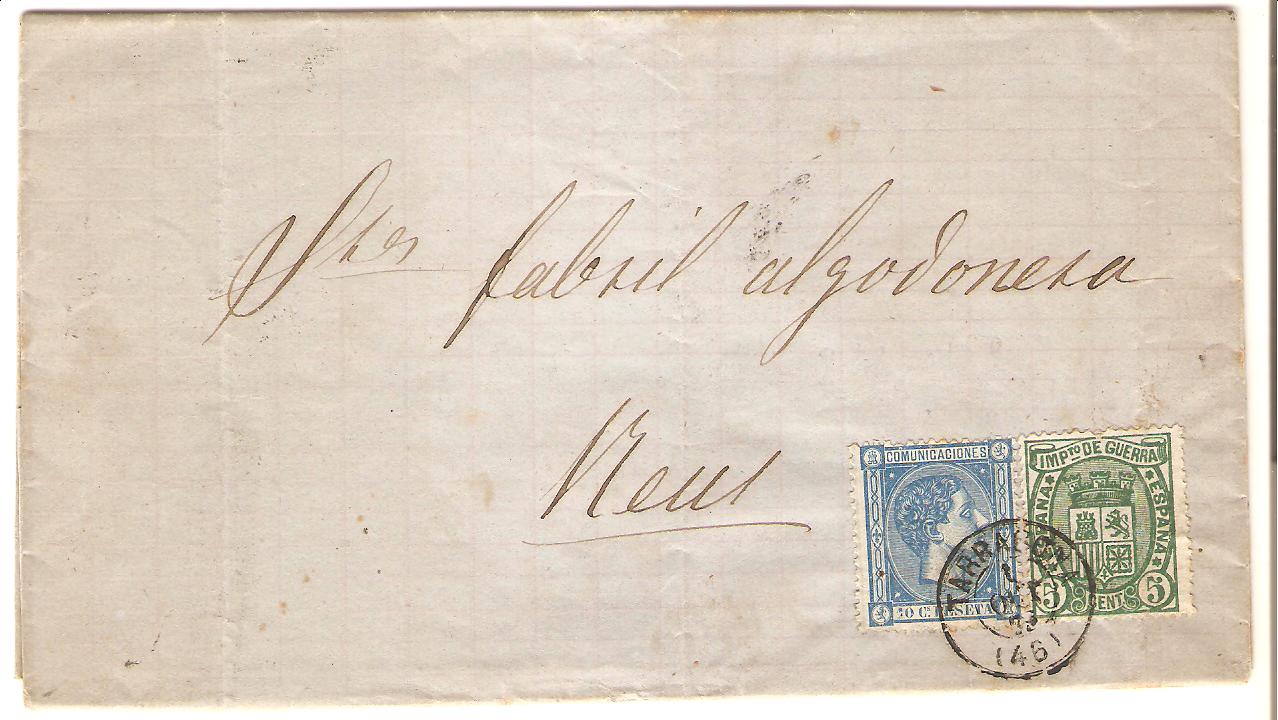 Stes fabril algodonera
Reus
COMUNICACIONES
10 Cs PESETA
IMPTO DE GUERRA
ESPAÑA
ESPAÑA
5 CENT. 5
TARRAGONA
(46)